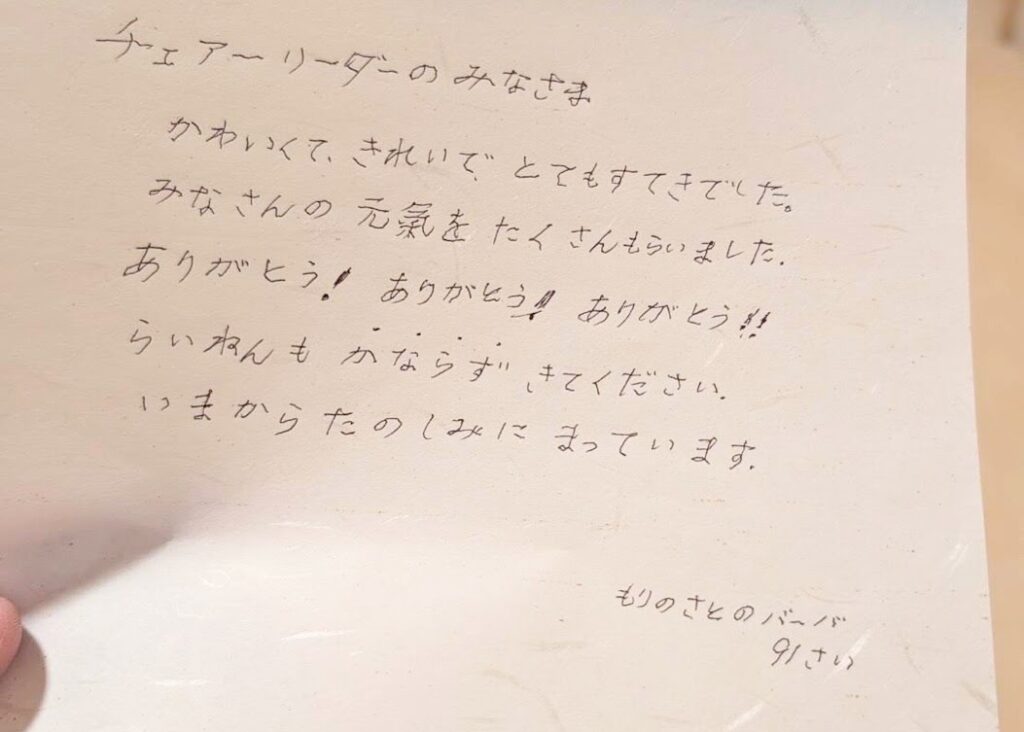 チェアーリーダーのみなさま
かわいくて、きれいで、とてもすてきでした。
みなさんの元氣をたくさんもらいました.
ありがとう! ありがとう!! ありがとう!!
らいねんもかならずきてください.
いまからたのしみにまっています.
もりのさとのバーバ
91さい